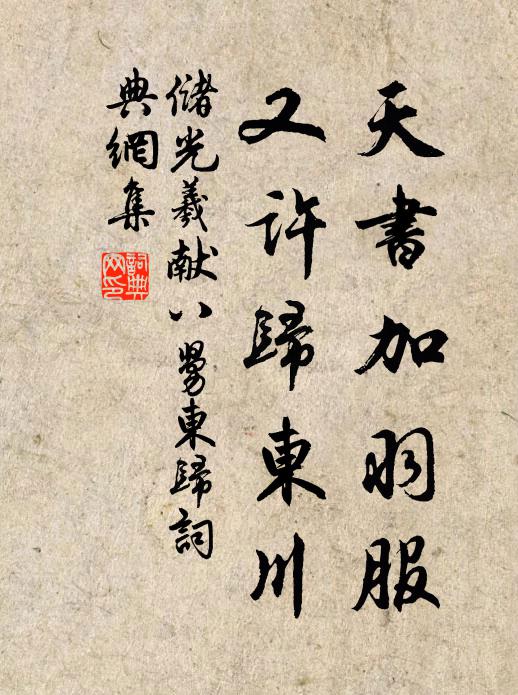 天書加羽服
又許歸東川
儲光羲献八舅東歸詞
典網集
詞典
网印